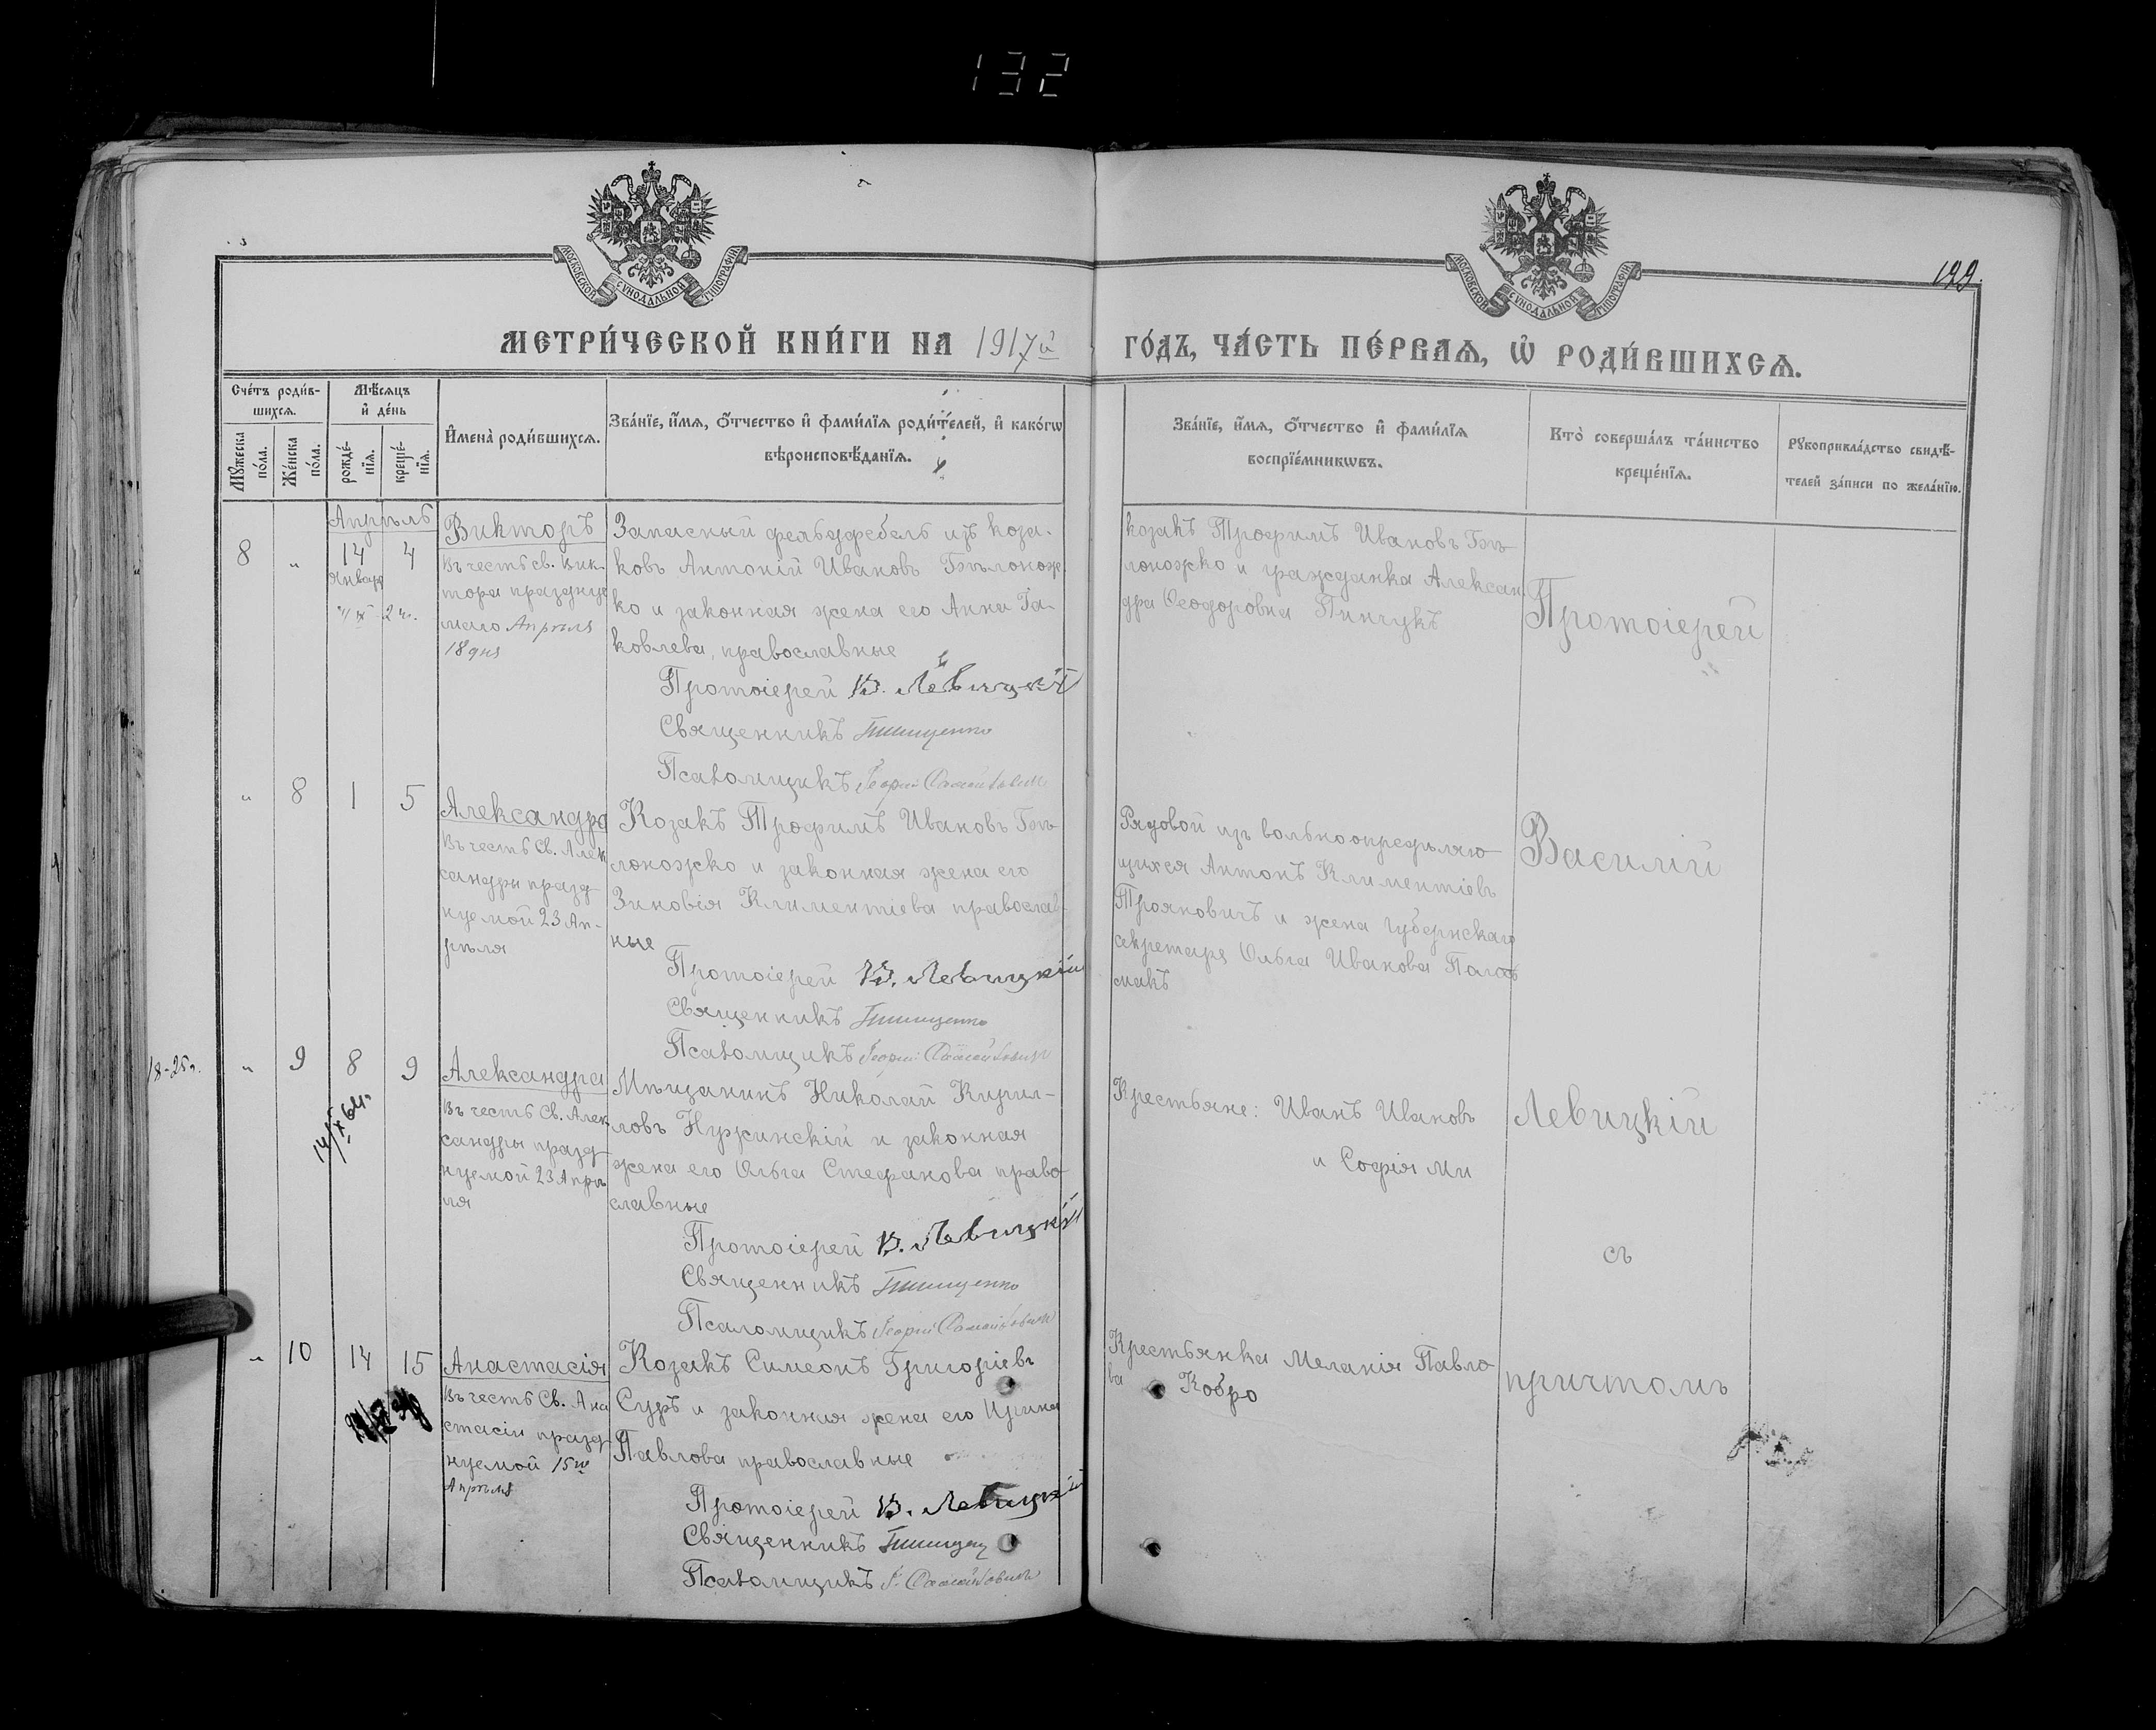 132
МОСКОВСКОЙ СѴНОДАЛЬНОЙ ТИПОГРАФІИ
МОСКОВСКОЙ СѴНОДАЛЬНОЙ ТИПОГРАФІИ
199.
МЕТРИ́ЧЕСКОЙ КНИ́ГИ НА 1917й
ГО́ДЪ, ЧА́СТЬ ПЕ́РВАѦ, Ѡ҆ РОДИ́ВШИХСѦ.
Сче́тъ роди́в-
шихсѧ.
Мꙋжеска по́ла.
Же́нска по́ла.
Мѣ́сѧцъ
и҆ де́нь
рожде́-
нїѧ.
креще́-
нїѧ.
И҆мена̀ роди́вшихсѧ.
Зва́нїе, и҆́мѧ, ѻ҆́тчество и҆ фами́лїѧ роди́телей, и҆ како́гѡ
вѣроисповѣ́данїѧ.
Зва́нїе, и҆́мѧ, ѻ҆́тчество и҆ фами́лїѧ
воспрїе́мникѡвъ.
Кто̀ соверша́лъ та́инство
креще́нїѧ.
Рꙋкоприкла́дство свидѣ́-
телей за́писи по жела́нїю.
Апрѣль
8 „ 14 4
Января
Викторъ
Въ честь св. Вик-
тора праздну
маго Апрѣля
18 дня
Запасный фельдфебель изъ коза-
ковъ Антоній Ивановъ Бѣлонож
ко и законная жена его Анна Іа-
ковлева, православные
Протоіерей В. Левицкій
Священникъ Тимищенко
Псаломщикъ Георгій
козакъ Трофимъ Ивановъ Бѣ-
лоножко и гражданка Алексан
дра Ѳеодоровна Пинчукъ
Протоіерей
„ 8 1 5
Александра
Въ честь Св. Алек
сандры празд
нуемой 23 Ап-
рѣля
Козакъ Трофимъ Ивановъ Бѣ-
лоножко и законная жена его
Зиновія Климентіева православ-
ные
Протоіерей В. Левицкій
Священникъ Тимищенко
Псаломщикъ Георгій
Рядовой изъ вольноопредѣляю-
щихся Антонъ Климентіевъ
Трояновичъ и жена губернскаго
секретаря Ольга Иванова
Василій
18-25г.
„ 9 8 9
14/X 64г.
Александра
Въ честь Св. Алек
сандры празд
нуемой 23 Апрѣ
ля
Мѣщанинъ Николай Кирил-
ловъ Нужинскій и законная
жена его Ольга Стефанова право
славные
Протоіерей В. Левицкій
Священникъ Тимищенко
Псаломщикъ Георгій
Крестьяне: Иванъ Ивановъ
и Софія Ми
Левицкій
съ
„ 10 14 15
Анастасія
Въ честь Св. Ана
стасіи празд
нуемой 15го
Апрѣля
Козакъ Симеонъ Григоріевъ
Суръ и законная жена его Ирина
Павлова православные
Протоіерей В. Левицкій
Священникъ
Псаломщикъ Г.
Крестьянка Меланія Павло
ва Кобро
причтомъ